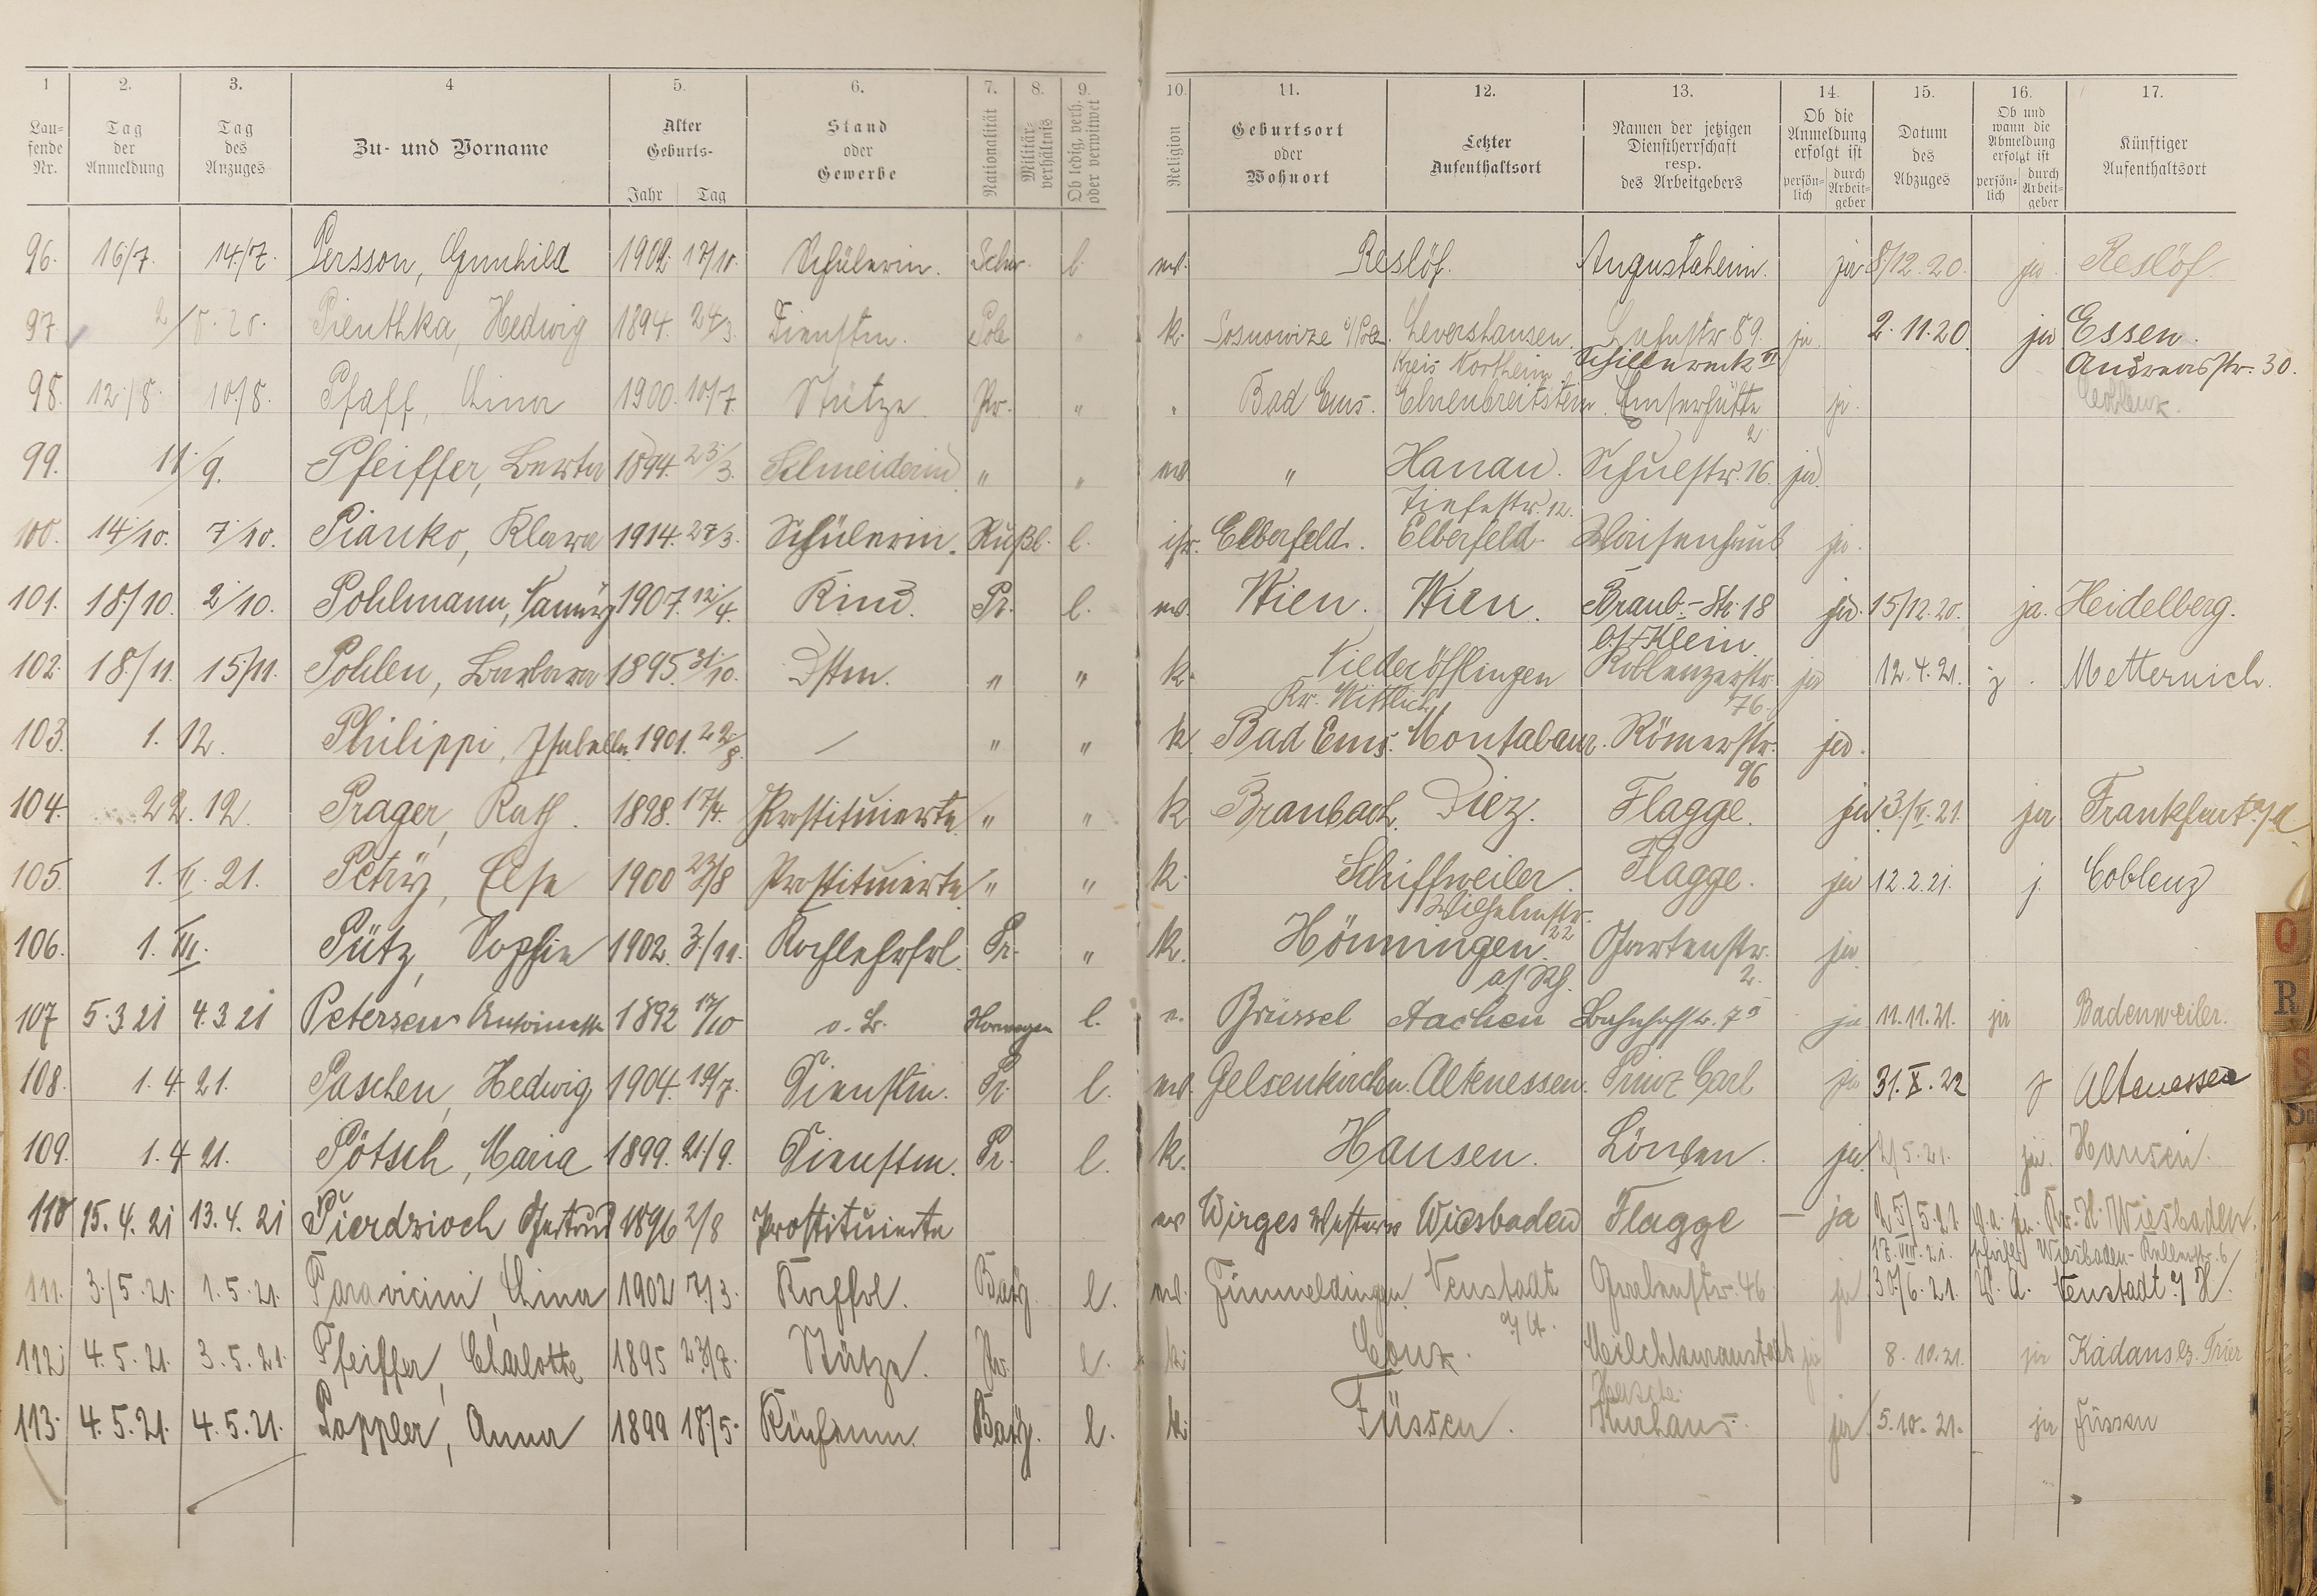 1 2. 3. 4 5. 6. 7. 8. 9. 10. 11. 12. 13. 14. 15. 16. 17.
Lau-fende Nr. Tag der Anmeldung Tag des Anzuges Zu- und Vorname Alter Geburts- Jahr Tag Stand oder Gewerbe Nationalität Militär-verhältnis Ob ledig, verh. oder verwitwet Religion Geburtsort oder Wohnort Letzter Aufenthaltsort Namen der jetzigen Dienstherrschaft resp. des Arbeitgebers Ob die Anmeldung erfolgt ist persön-lich durch Arbeit-geber Datum des Abzuges Ob und wann die Abmeldung erfolgt ist persön-lich durch Arbeit-geber Künftiger Aufenthaltsort
96. 16/7. 14./7. Persson, Gunhild 1902. 17/10. Schülerin. Schw. l. ev. Reslöf. Augustaheim. ja 8/12.20. ja Reslöf.
97. 2/8.20. Pienthka, Hedwig 1894. 24/3. Dienstm. Pole " k. Sosnowize Levershausen. 89. ja 2.11.20. ja Essen.
Kreis Northeim Andreasstr. 30.
98. 12/8. 10./8. Pfaff, Lina 1900. 10./7. Stütze Pr. " " Bad Ems. Ehrenbreitstein. Emserhütte ja. Coblenz.
2
99. 11./9. Pfeiffer, Berta 1894. 23/3. Schneiderin " " ev. " Hanau. Schulstr. 16. ja.
Tiefestr. 12.
100. 14/10. 7/10. Pianko, Klara 1914. 27/3. Schülerin. Rußl. l. isr. Elberfeld. Elberfeld. Waisenhaus ja.
101. 18/10. 2/10. Pohlmann, 1907. 12/4. Kind. Pr. l. ev. Wien. Wien. Braub.-Str. 18 ja. 15/12.20. ja. Heidelberg.
b/Klein.
102. 18./11. 15/11. Pohlen, Barbara 1895. 31/10. Dstm. " " k. Niederöfflingen Koblenzerstr. ja 12.4.21. j. Metternich.
Kr. Wittlich 76.
103. 1.12. Philippi, Isabella. 1901. 22/8. — " " k. Bad Ems. Montabaur. Römerstr. ja.
96
104. 22.12. Prager, Kath. 1898. 17/4. Prostituierte " " k Braubach. Diez. Flagge. ja 3./II.21. ja Frankfurt a/M
105. 1.II.21. Petry, Else 1900 23/8 Prostituierte " " k. Schiffweiler. Flagge. ja 12.2.21. j. Coblenz
Wilhelmstr. 22
106. 1.III. Pütz, Sophie 1902. 3./11. Kochlehrfrl. Pr. " k. Hönningen. Gartenstr. ja
a/Rh. 2.
107 5.3.21 4.3.21 Petersen Antoinette 1892 17/10 o. B. Norwegen l. e. Brüssel Aachen Bahnhofstr. 7a ja 11.11.21. ja Badenweiler.
108. 1.4.21. Paschen, Hedwig 1904. 19/7. Dienstm. Pr. l. ev. Gelsenkirchen. Altenessen. Prinz Carl ja 31.X.22 j Altenessen
109. 1.4.21. Pötsch, Maria 1899. 21./9. Dienstm. Pr. l. k. Hausen. Löwen. ja. 2/5.21. ja. Hausen.
110 15.4.21 13.4.21 Pierdzioch Gertrud 1896 2/8 Prostituierte ev Wirges Westerw Wiesbaden Flagge — ja 25/5.21. Wiesbaden.
17.VIII.21. Wiesbaden- Kellerstr. 6
111. 3./5.21. 1.5.21. Paravicini, Lina 1902 7/3. Kochfrl. Bay. l. ev. Fimmeldingen. Neustadt Grabenstr. 46. ja 30/6.21. W. A. Neustadt a/H.
a/H.
112. 4.5.21. 3.5.21. Pfeiffer, Charlotte 1895 23/8. Stütze. Pr. l. k. Conz. Milchkuranstalt ja 8.10.21. ja Kadans bz. Trier
113. 4.5.21. 4.5.21. Pappler, Anna 1899 18/5. Küchenm. Bay. l. k. Füssen. Kurhaus. ja 5.10.21. ja Füssen
Q
R
S